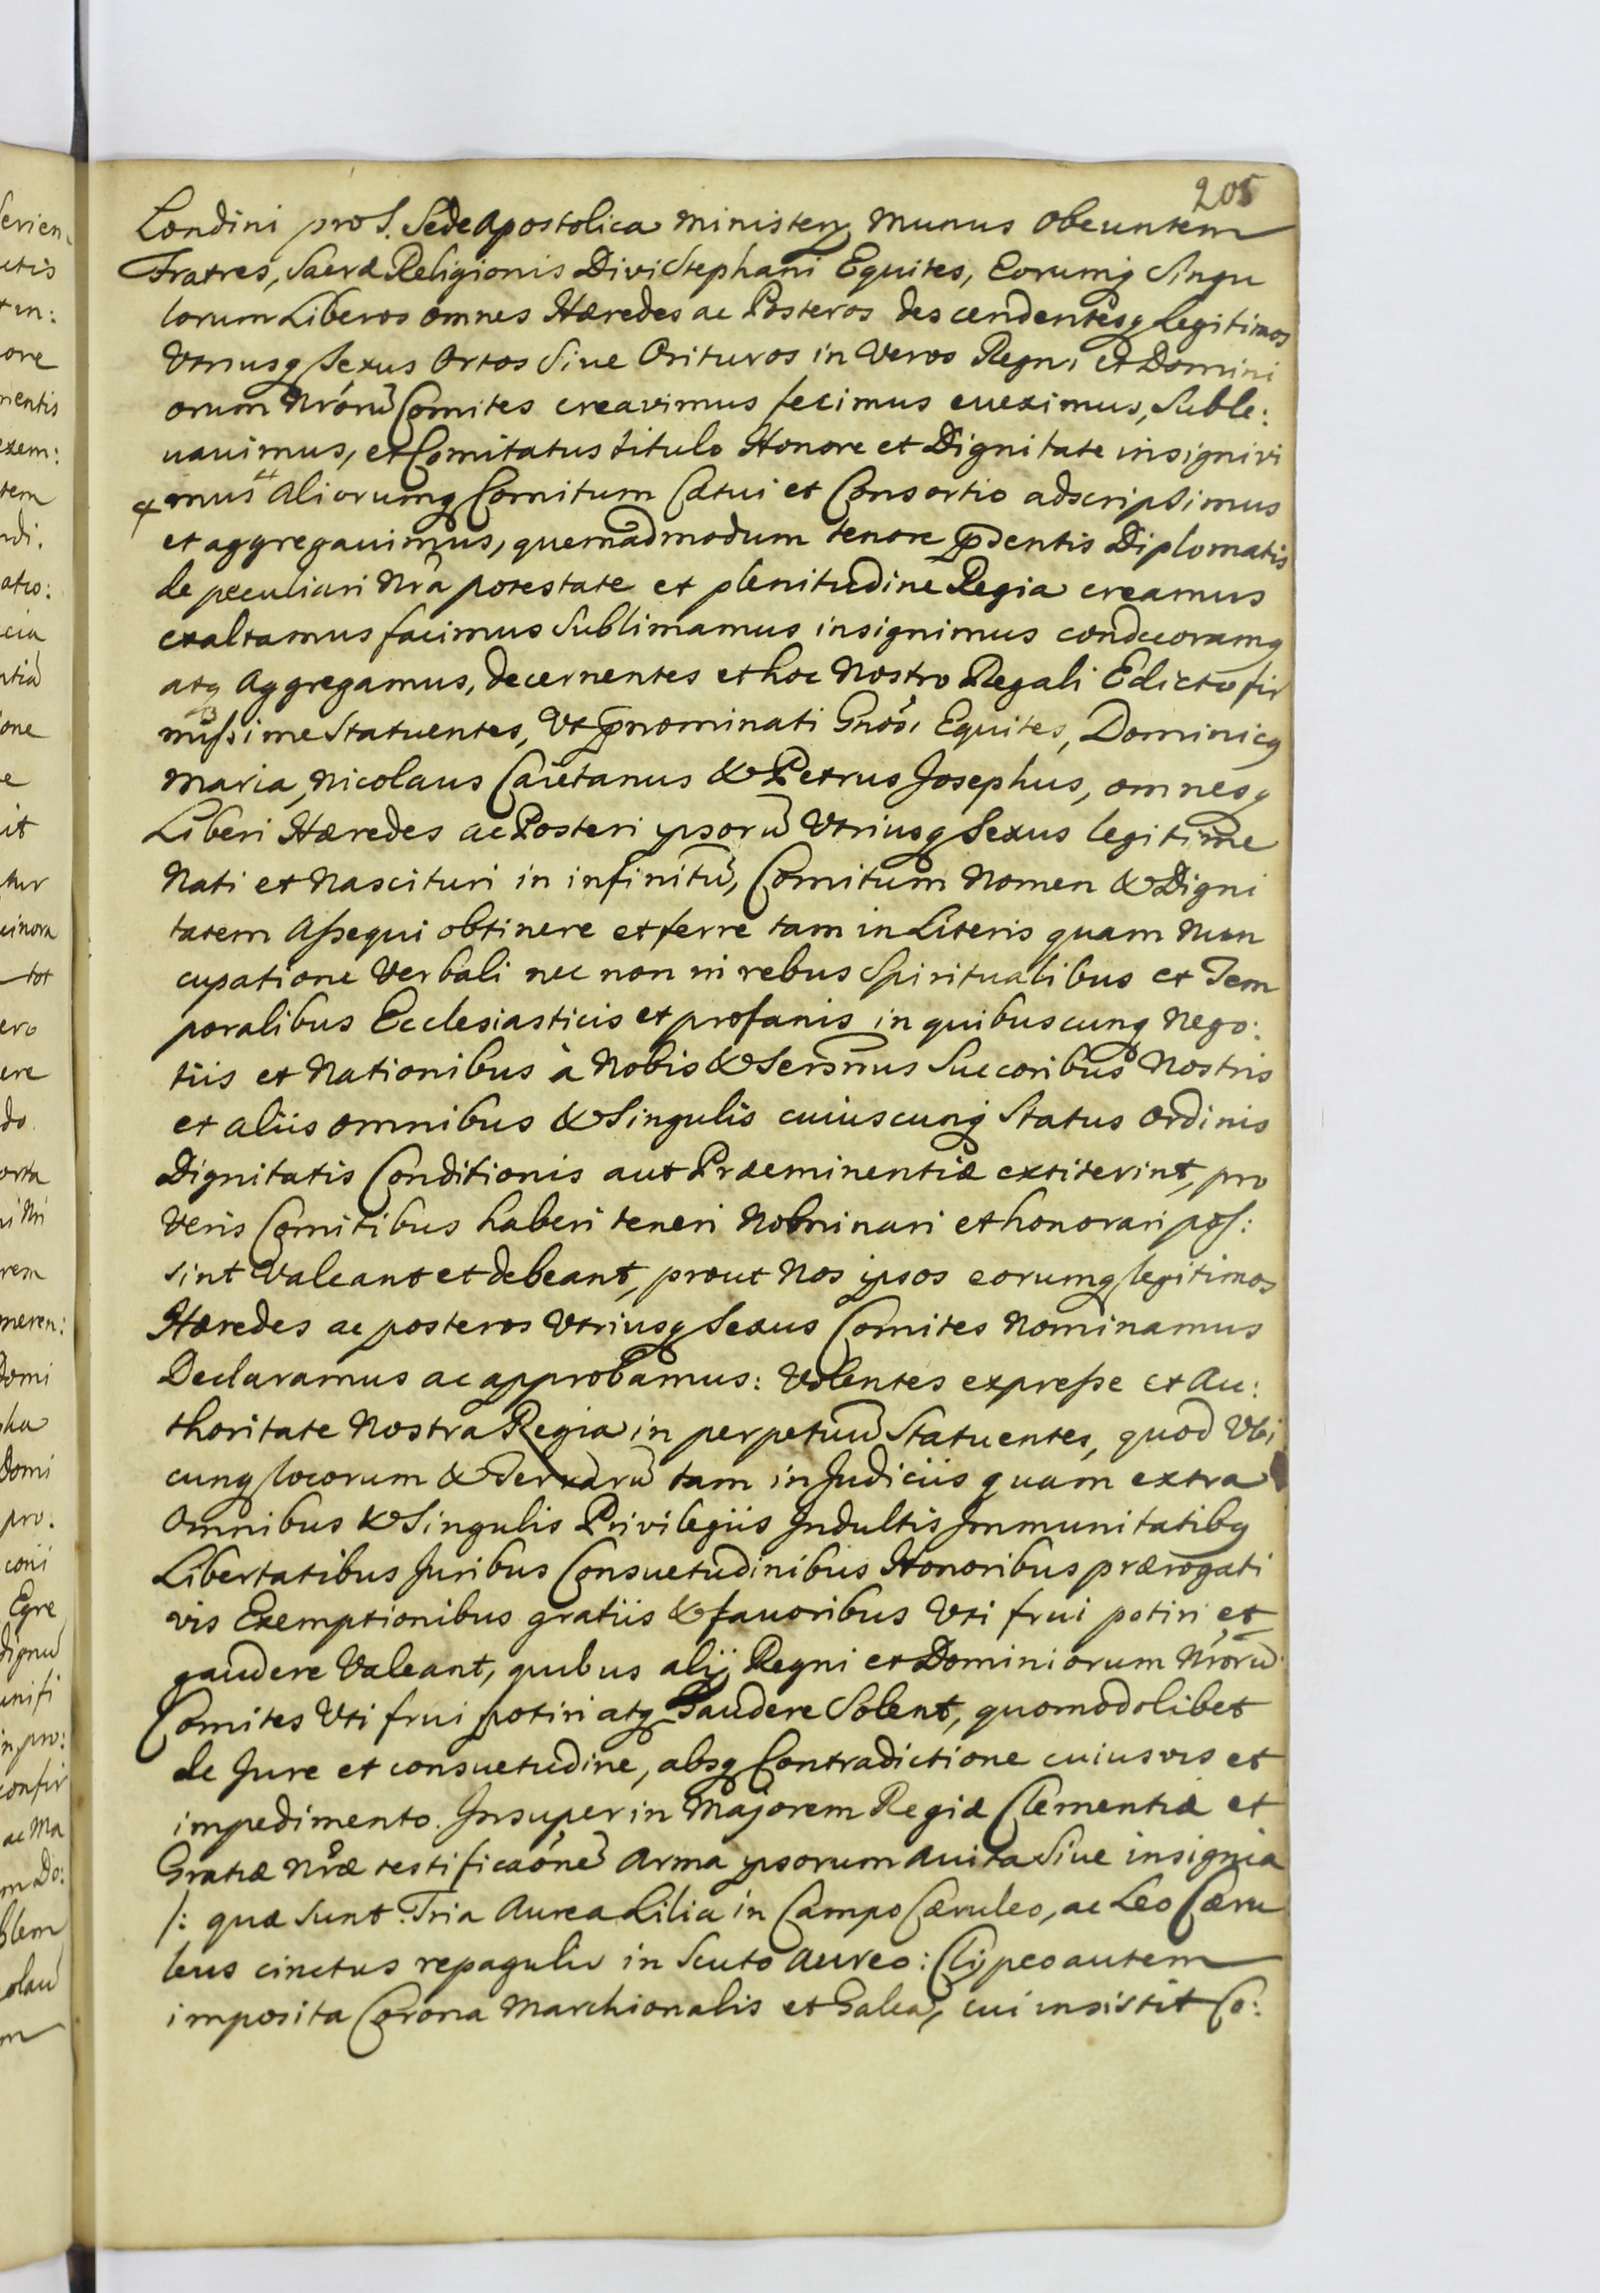 205
Londini pro S. Sede Apostolica Ministerij Munus Obeuntem
Fratres, Sacræ Religionis Divi Stephani Equites, Eorumq Singu
lorum Liberos omnes Hæredes ac Posteros descendentesq Legitimos
Utriusq Sexus Ortos Sive Orituros in Veros Regni et Domini
orum Nrorũ Comites creavimus fecimus eveximus, Suble:
vavimus, et Comitatus titulo Honore et Dignitate insignivi
mus et Aliorumq Comitum Cætui et Consortio adscripsimus
et aggregavimus, quemadmodum tenore pdentis Diplomatis
de peculiari Nrã potestate et plenitudine Regia creamus
exaltamus facimus Sublimamus insignimus condecoramq
atq Aggregamus, decernentes et hoc Nostro Regali Edicto fir
missime Statuentes, Ut pnominati Gnosi Equites, Dominicq
Maria, Nicolaus Caietanus & Petrus Josephus, omnesq
Liberi Hæredes ac Posteri ipsorũ Utriusq Sexus legitime
Nati et Nascituri in infinitũ, Comitum Nomen & Digni
tatem Assequi obtinere et ferre tam in Literis quam Nun
cupatione Verbali nec non in rebus Spiritualibus et Tem
poralibus Ecclesiasticis et profanis in quibuscunq Nego:
tiis et Nationibus à Nobis & Sersmus Succoribus Nostris
et aliis omnibus & Singulis cuiuscunq Status Ordinis
Dignitatis Conditionis aut Præeminentiæ extiterint, pro
Veris Comitibus haberi teneri Nominari et honorari pos:
sint Valeant et debeant, prout Nos ipsos eorumq legitimos
Hæredes ac posteros Utriusq Sexus Comites Nominamus
Declaramus ac approbamus: Volentes expresse et Au:
thoritate Nostra Regia in perpetuũ Statuentes, quod Ubi
cunq locorum & Terrarũ tam in Judiciis quam extra
Omnibus & Singulis Privilegiis Indultis Immunitatibq
Libertatibus Juribus Consuetudinibus Honoribus prærogati
vis Exemptionibus gratiis & favoribus Uti frui potiri et
gaudere Valeant, quibus alij Regni et Dominiorum Nrorũ
Comites Uti frui potiri atq Gaudere Solent, quomodolibet
de Jure et consuetudine, absq Contradictione cuiusvis et
impedimento. Insuper in Majorem Regiæ Clementiæ et
Gratiæ Nræ testificaõnẽ Arma ipsorum Avita Sive insignia
/: quæ Sunt. Tria Aurea Lilia in Campo Cæruleo, ac Leo Cæru
leus cinctus repagulis in Scuto Aureo: Clijpeo autem
imposita Corona Marchionalis et Galea, cui insistit Co: